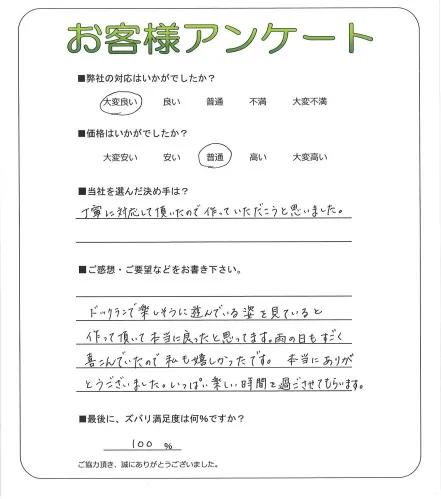 お客様アンケート
■弊社の対応はいかがでしたか？
大変良い 良い 普通 不満 大変不満
■価格はいかがでしたか？
大変安い 安い 普通 高い 大変高い
■当社を選んだ決め手は？
丁寧に対応して頂いたので作っていただこうと思いました。
■ご感想・ご要望などをお書き下さい。
ドックランで楽しそうに遊んでいる姿を見ていると
作って頂いて本当に良ったと思ってます。雨の日もすごく
喜こんでいたので私も嬉しかったです。 本当にありが
とうございました。いっぱい楽しい時間を過ごさせてもらいます。
■最後に、ズバリ満足度は何%ですか？
100 %
ご協力頂き、誠にありがとうございました。